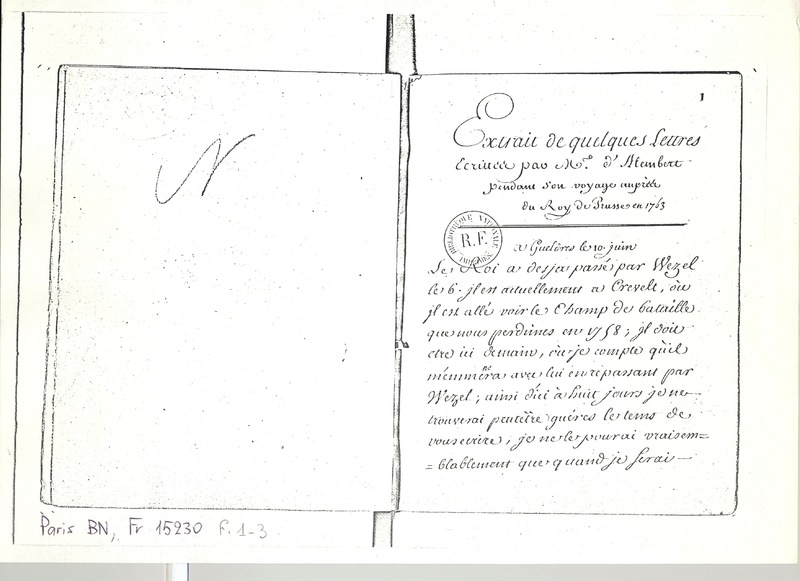 N
1
Extrait de quelques Lettres
Ecrittes par Mr. d'Alembert
pendant son voyage auprès
du Roy de Prusse en 1763
BIBLIOTHÈQUE NATIONALE
R.F.
à Gueldres le 10. juin
Le Roi a desja passé par Wezel
le 6. jl est actuellement a Crevelt, où
jl est allé voir le Champ de bataille
que nous perdimes en 1758 ; jl doit
etre ici demain, où je compte qu'il
m'emmenera avec lui en repassant par
Wezel ; ainsi d'ici à huit jours je ne
trouverai peutetre guéres le tems de
vous ecrire, je ne le pourai vraisem=
=blablement que quand je serai
Paris BN, Fr 15230 f. 1-3